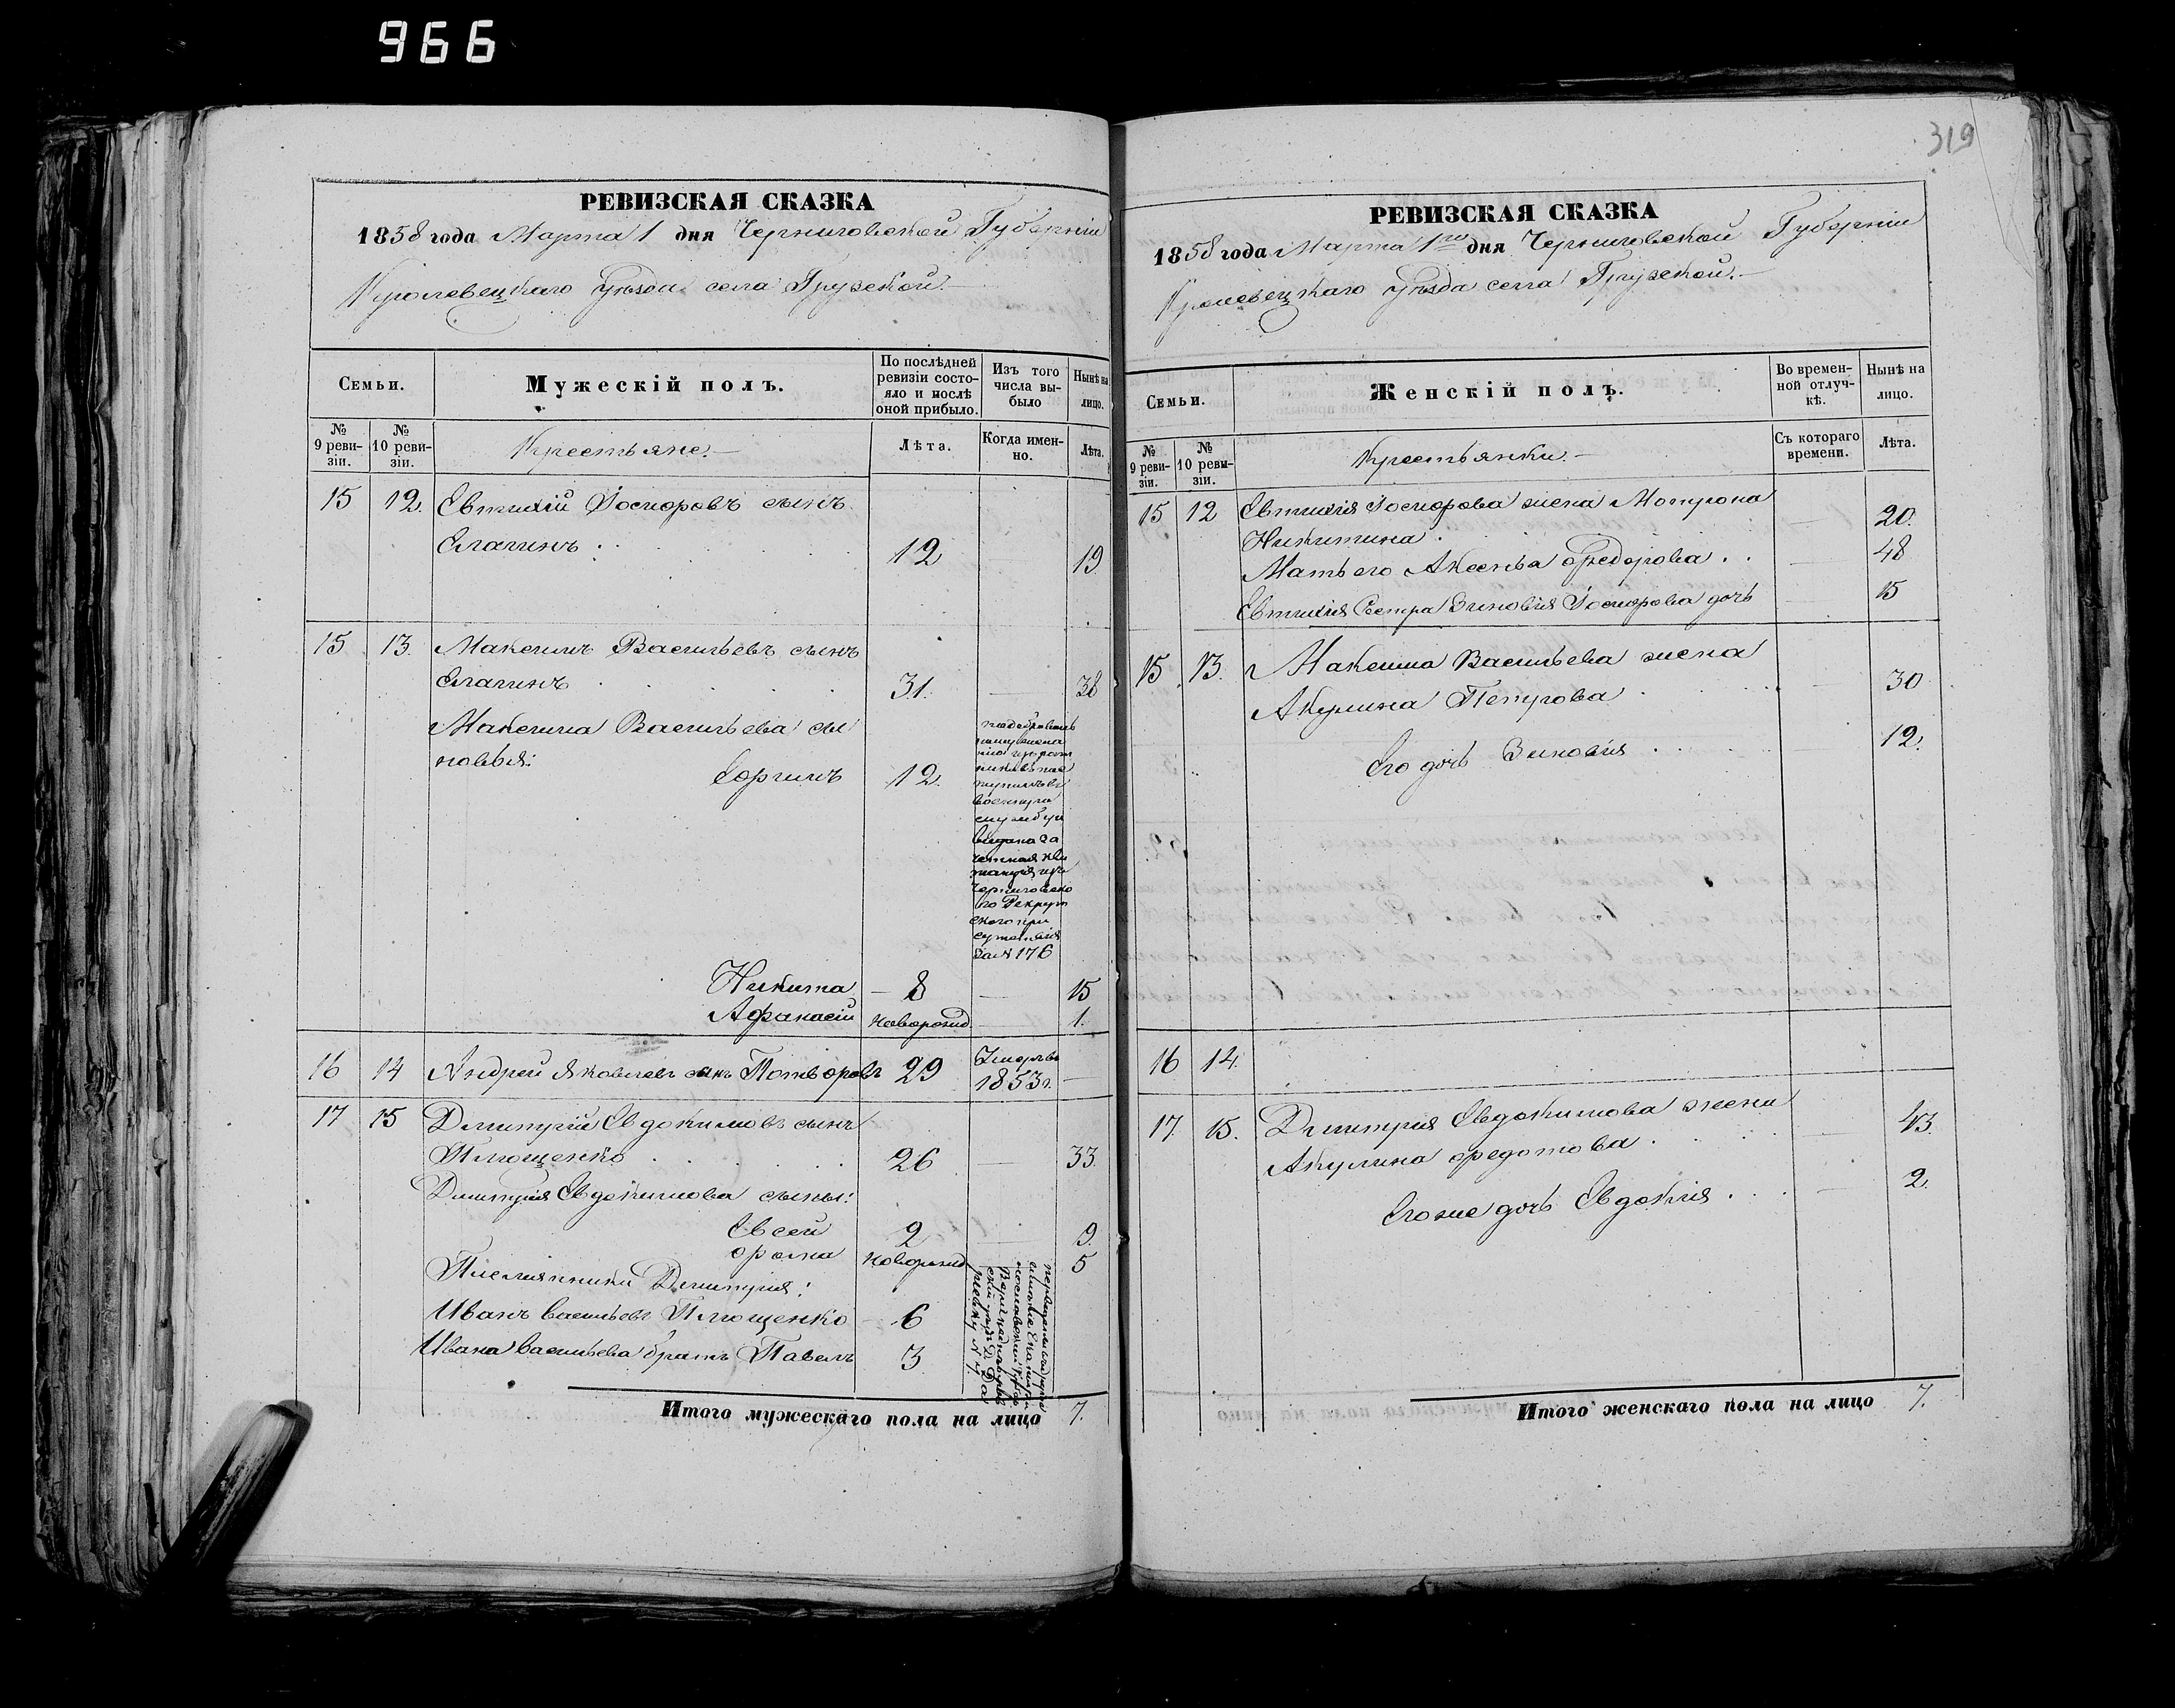 966
РЕВИЗСКАЯ СКАЗКА
1858 года Марта 1 дня Черниговской Губерніи
Кролевецкаго уѣзда села Грузской.
Семьи.
Мужескій полъ.
По послѣдней ревизіи состояло и послѣ оной прибыло.
Изъ того числа выбыло
Нынѣ на лицо.
№ 9 ревизіи.
№ 10 ревизіи.
Крестьяне.
Лѣта.
Когда именно.
Лѣта.
15 12. Евтихій сынъ
12 19
15 13. Максимъ Васильевъ сынъ
31. 38
Максима Васильева сы
новья:
12.
военную
службу и
выдана за
четная кви
танція изъ
Черниговска
го Рекрут
скаго при
сутствія
за № 176
Никита 8 15
Афанасій новорожд 1.
16 14 Андрей Яковлевъ сынъ 29 Умеръ въ
1853 г.
17 15 Дмитрій Евдокимовъ сынъ
Плющенко 26 33.
Дмитрія Евдокимова сыны:
Евсей 2 9.
Фома новорожд 5
Племянники Дмитрія:
Иванъ Васильевъ Плющенко 6
Ивана Васильева братъ Павелъ 3
Итого мужескаго пола на лицо 7.
319
РЕВИЗСКАЯ СКАЗКА
1858 года Марта 1го дня Черниговской Губерніи
Кролевецкаго уѣзда села Грузской.
Семьи.
Женскій полъ.
Во временной отлучкѣ.
Нынѣ на лицо.
№ 9 ревизіи.
№ 10 ревизіи.
Крестьянки.
Съ котораго времени.
Лѣта.
15 12 Евтихія жена Мотрона
Никитина 20.
Мать его Аксенья Федорова 48
Евтихія сестра Зиновія дочь 15
15 13. Максима Васильева жена
Акулина Петрова 30
Его дочь Зиновія 12.
16 14.
17. 15. Дмитрия Евдокимова жена
Акулина Федотова 43.
Его же дочь Евдокія 2.
Итого женскаго пола на лицо 7.